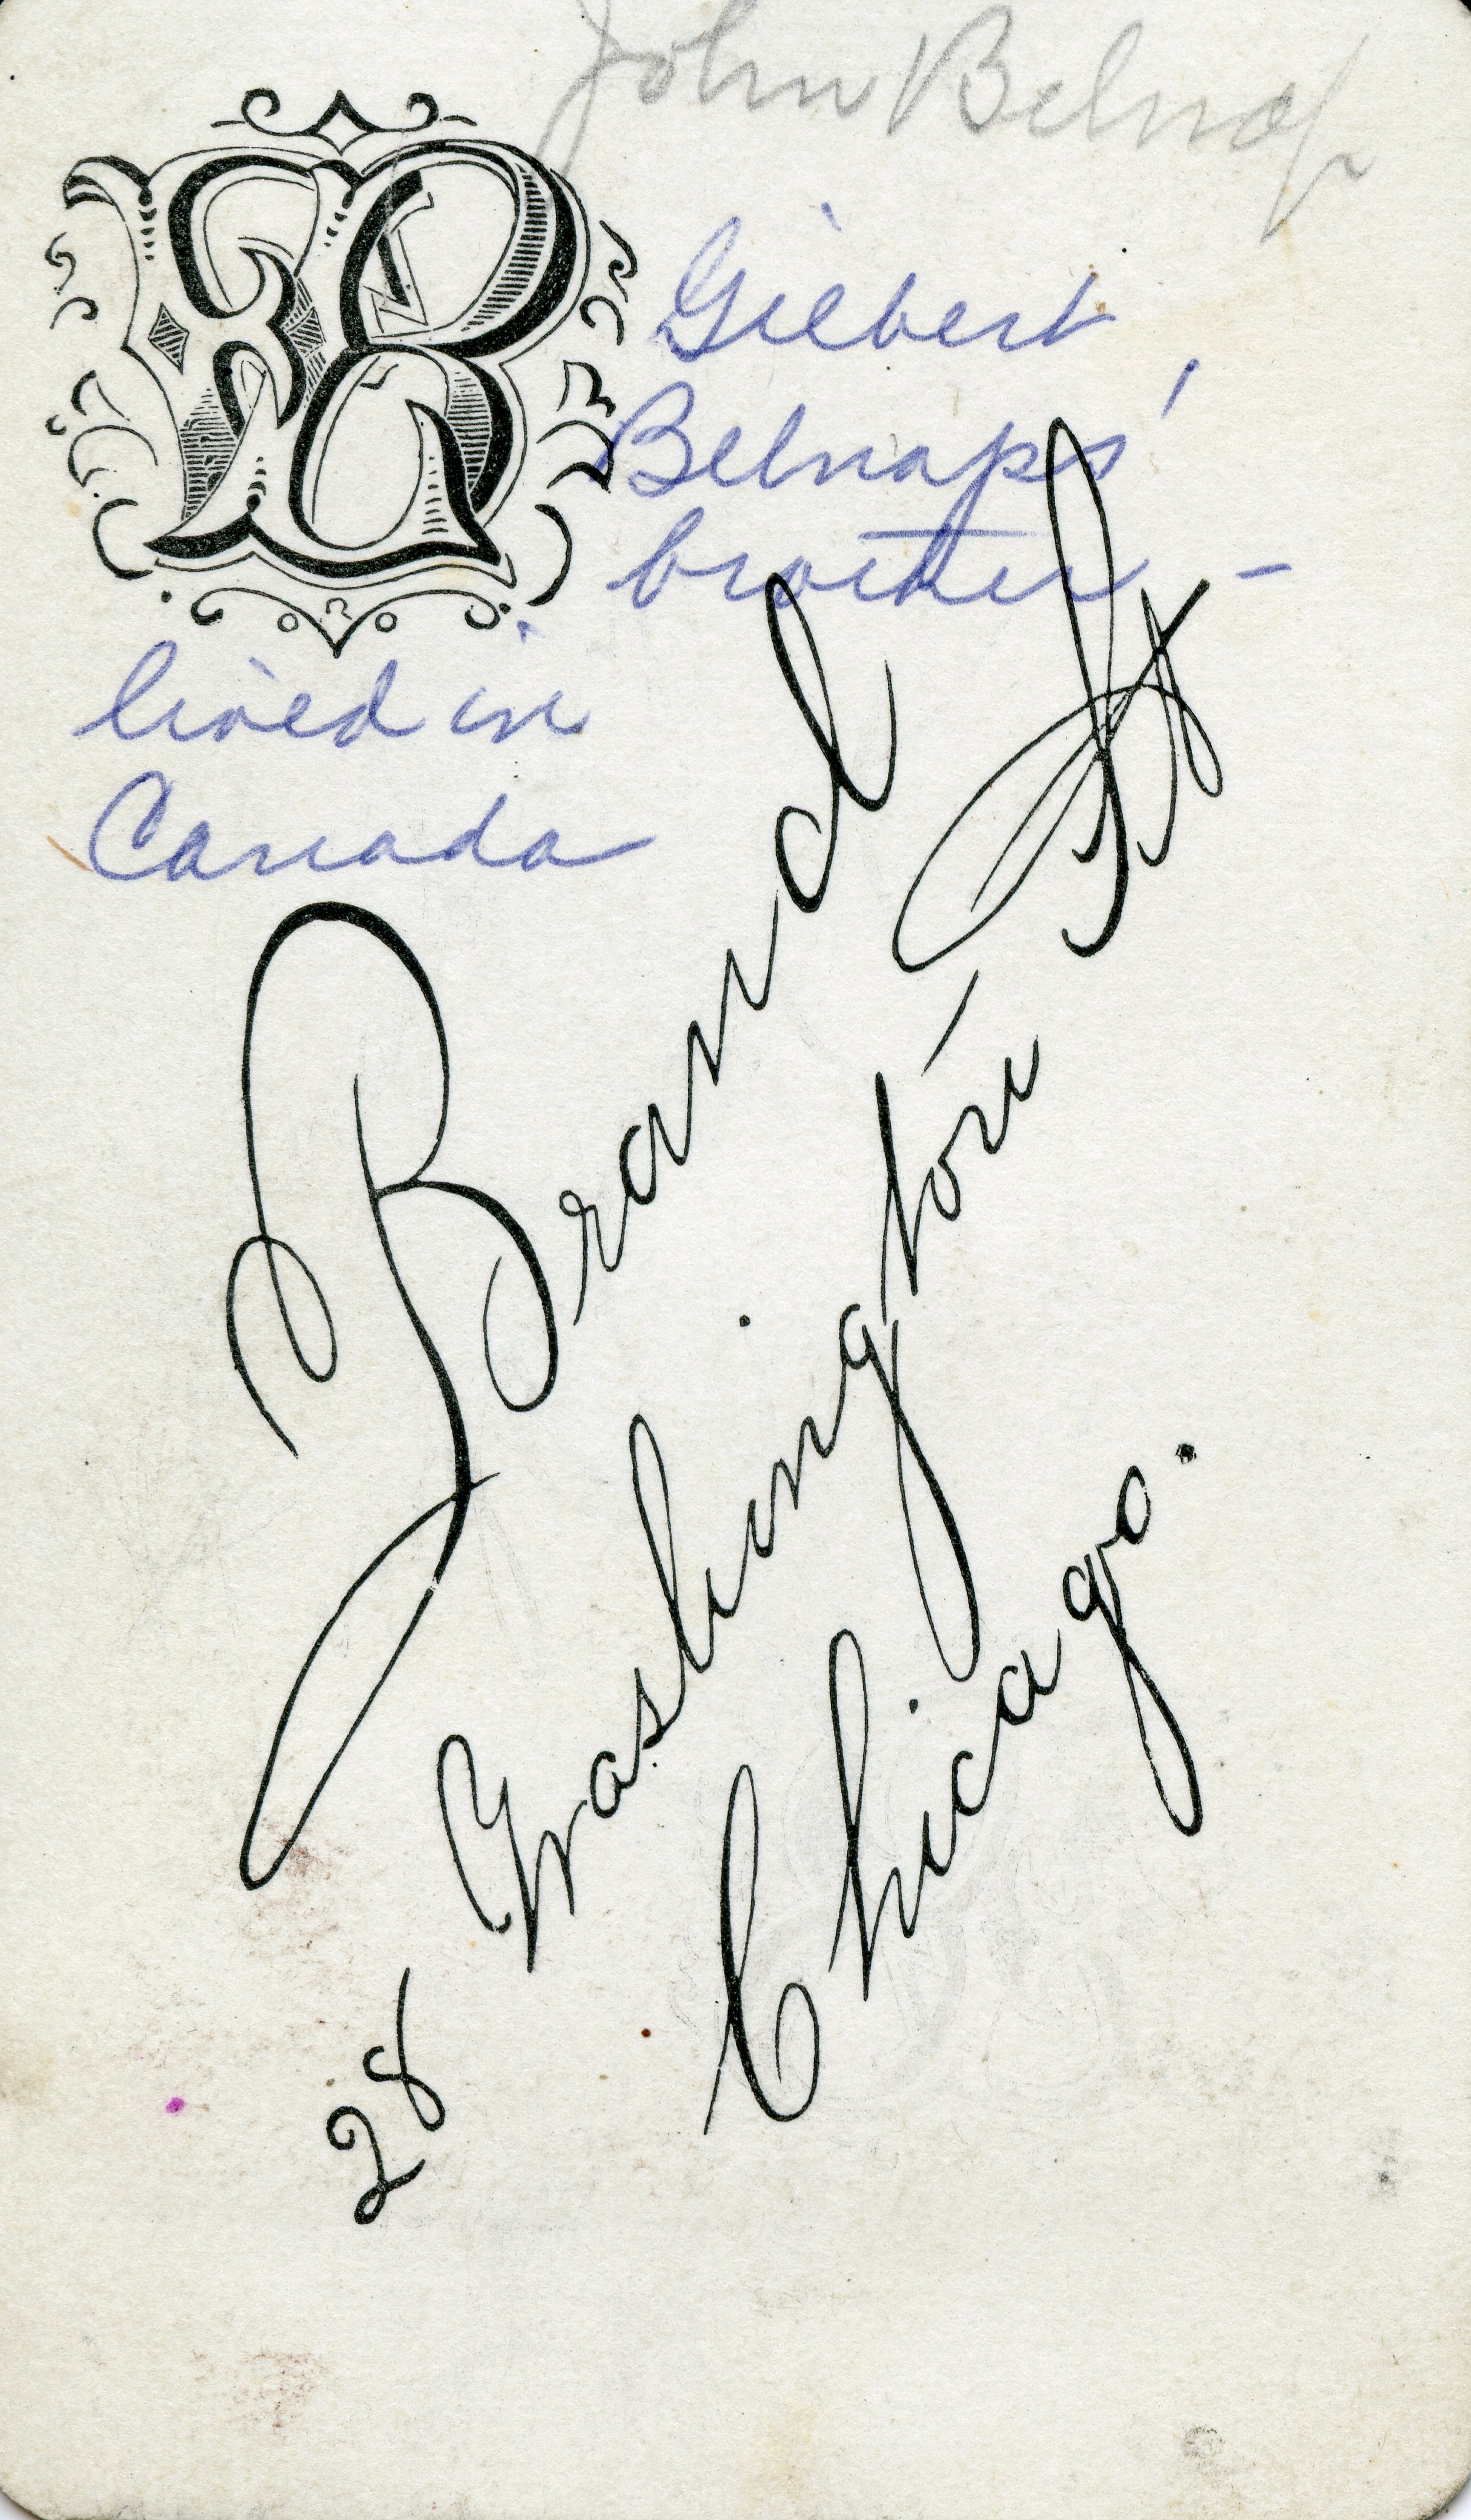 John Belnap
B
Gilbert
Belnaps'
brother -
lived in
Canada
Brand
28 Washington St
Chicago.